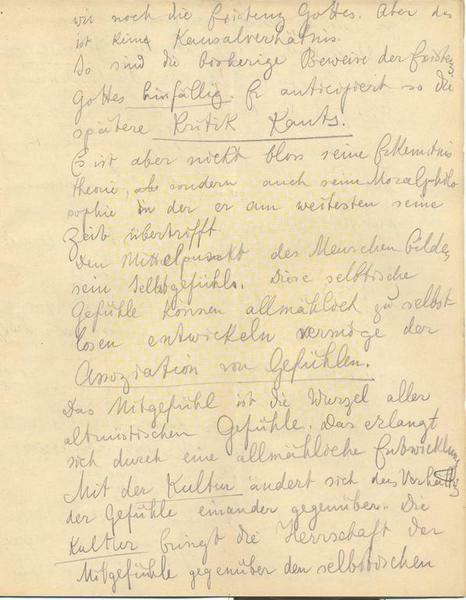 wir noch die Existenz Gottes. Aber das
ist keine Kausalverhältnis.
So sind die bisherige Beweise der Existenz
Gottes hinfällig. Er anticipiert so die
spätere Kritik Kants.
Es ist aber nickt bloss seine Erkenntnis
theorie, sondern auch seine Moralphilo
sophie in der er am weitesten seine
Zeit übertrifft
Den Mittelpunkt des Menschen bildet
sein Selbstgefühl. Diese selbstische
Gefühle können allmählich zu selbst-
losen entwickeln vermöge der
Assoziation von Gefühlen.
Das Mitgefühl ist die Wurzel aller
altruistischen Gefühle. Das erlangt
sich durch eine allmähliche Entwicklung
Mit der Kultur ändert sich das Verhältnis
der Gefühle einander gegenüber. Die
Kultur bringt die Herrschaft der
Mitgefühle gegenüber den selbstischen